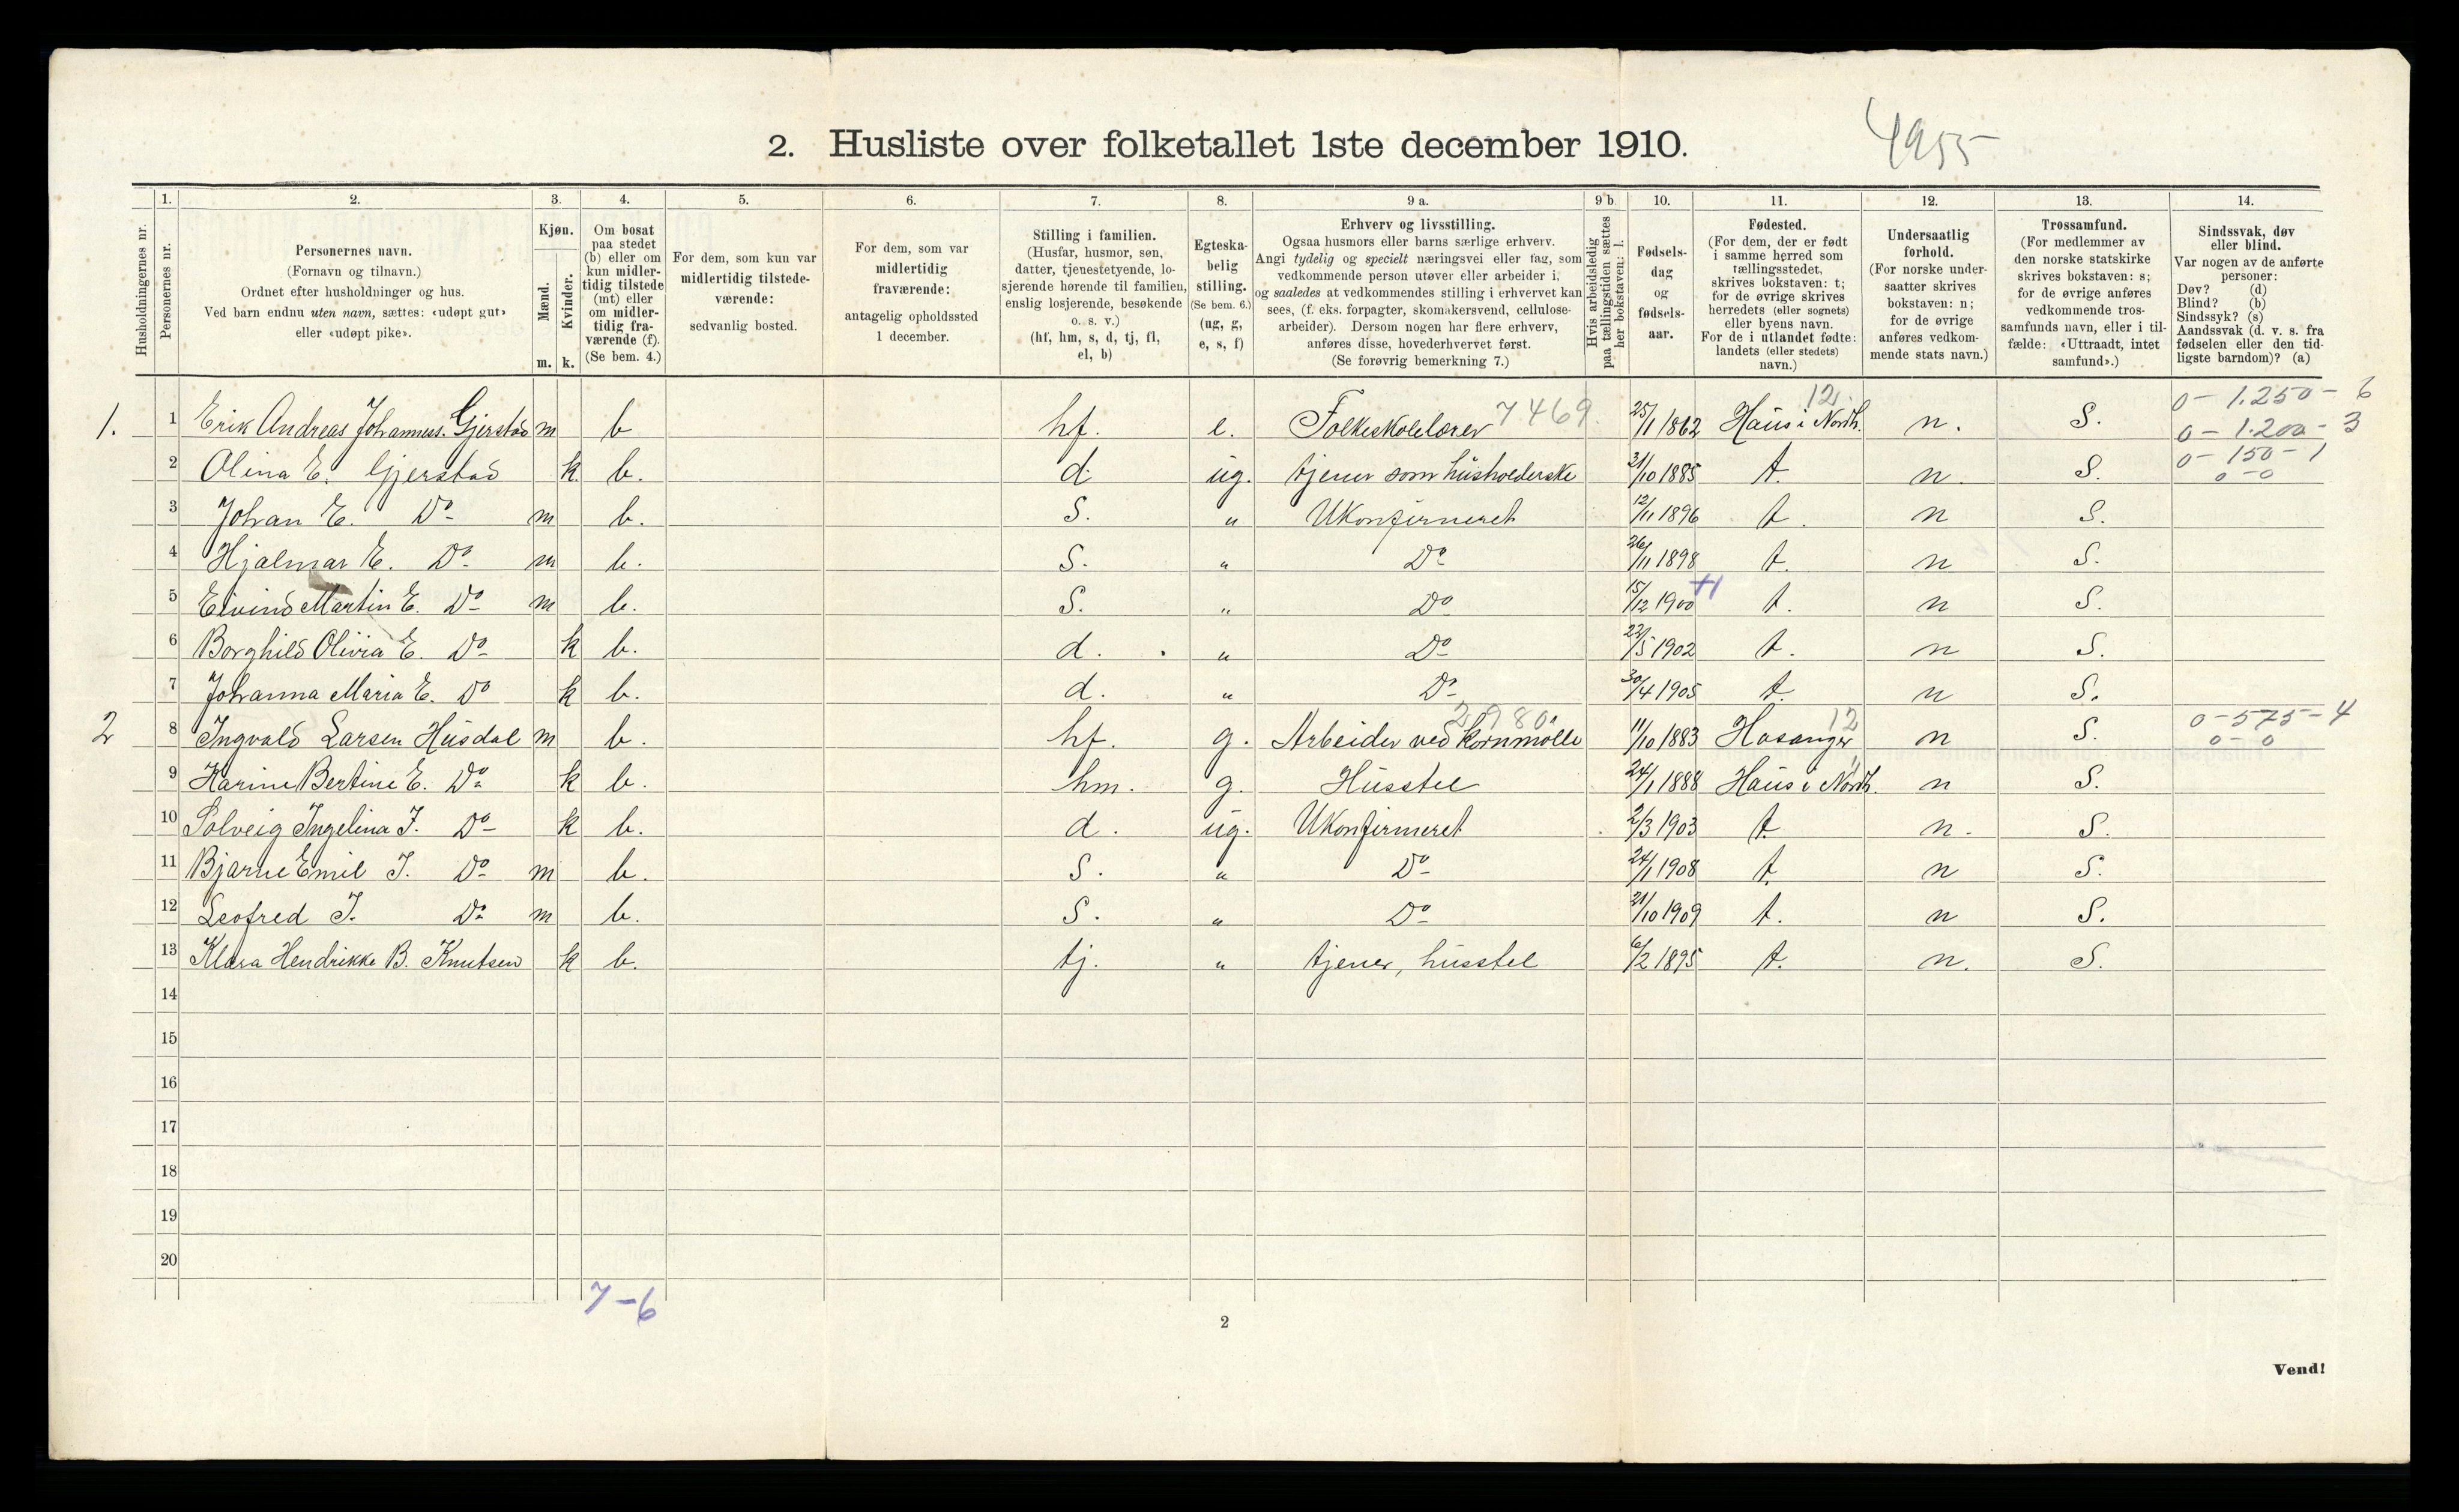 2. Husliste over folketallet 1ste december 1910.
4955
Husholdningernes nr.
1. Personernes nr.
2. Personernes navn. (Fornavn og tilnavn.) Ordnet efter husholdninger og hus. Ved barn endnu uten navn, sættes: «udøpt gut» eller «udøpt pike».
3. Kjøn. Mænd. m. Kvinder. k.
4. Om bosat paa stedet (b) eller om kun midlertidig tilstede (mt) eller om midlertidig fraværende (f). (Se bem. 4.)
5. For dem, som kun var midlertidig tilstedeværende: sedvanlig bosted.
6. For dem, som var midlertidig fraværende: antagelig opholdssted 1 december.
7. Stilling i familien. (Husfar, husmor, søn, datter, tjenestetyende, losjerende hørende til familien, enslig losjerende, besøkende o. s. v.) (hf, hm, s, d, tj, fl, el, b)
8. Egteskabelig stilling. (Se bem. 6.) (ug, g, e, s, f)
9 a. Erhverv og livsstilling. Ogsaa husmors eller barns særlige erhverv. Angi tydelig og specielt næringsvei eller fag, som vedkommende person utøver eller arbeider i, og saaledes at vedkommendes stilling i erhvervet kan sees, (f. eks. forpagter, skomakersvend, cellulosearbeider). Dersom nogen har flere erhverv, anføres disse, hovederhvervet først. (Se forøvrig bemerkning 7.)
9 b. Hvis arbeidsledig paa tællingstiden sættes her bokstaven: l.
10. Fødselsdag og fødselsaar.
11. Fødested. (For dem, der er født i samme herred som tællingsstedet, skrives bokstaven: t; for de øvrige skrives herredets (eller sognets) eller byens navn. For de i utlandet fødte: landets (eller stedets) navn.)
12. Undersaatlig forhold. (For norske undersaatter skrives bokstaven: n; for de øvrige anføres vedkommende stats navn.)
13. Trossamfund. (For medlemmer av den norske statskirke skrives bokstaven: s; for de øvrige anføres vedkommende trossamfunds navn, eller i tilfælde: «Uttraadt, intet samfund».)
14. Sindssvak, døv eller blind. Var nogen av de anførte personer: Døv? (d) Blind? (b) Sindssyk? (s) Aandssvak (d. v. s. fra fødselen eller den tidligste barndom)? (a)
1. 1 Erik Andreas Johanness. Gjerstad m b hf. e. Folkeskolelærer 7469. 25/1 1862 Haus i Nordh. 12. n. S. 0 - 1.250 - 6 0 - 1.200 - 3
2 Olina E. Gjerstad k b. d. ug. tjener som husholderske 31/10 1885 t. n. S. 0 - 150 - 1 0 - 0
3 Johan E. Do m b. S. " Ukonfirmeret 12/11 1896 t. n S.
4 Hjalmar E. Do m b. S. " Do 26/11 1898 t. n S.
5 Eivind Martin E. Do m b. S. " Do 15/12 1900 t. n S.
6 Borghild Olivia E. Do k b. d. " Do 22/5 1902 t. n S.
7 Johanna Maria E. Do k b. d. " Do 30/4 1905 t. n S.
2 8 Ingvald Larsen Husdal m b. hf. g. Arbeider ved kornmølle 2980. 11/10 1883 Hosanger 12 n S. 0 - 575 - 4 0 - 0
9 Karine Bertine E. Do k b. hm. g. Husstel 24/1 1888 Haus i Nordh. n S.
10 Solveig Ingelina I. Do k b. d. ug. Ukonfirmeret 2/3 1903 t. n. S.
11 Bjarne Emil I. Do m b. S. " Do 24/1 1908 t. n S.
12 Leofred I. Do m b. S. " Do 21/10 1909 t. n S.
13 Klara Hendrikke B. Knutsen k b. tj. " tjener, husstel 6/2 1895 t. n. S.
14
15
16
17
18
19
20
7-6
2
Vend!